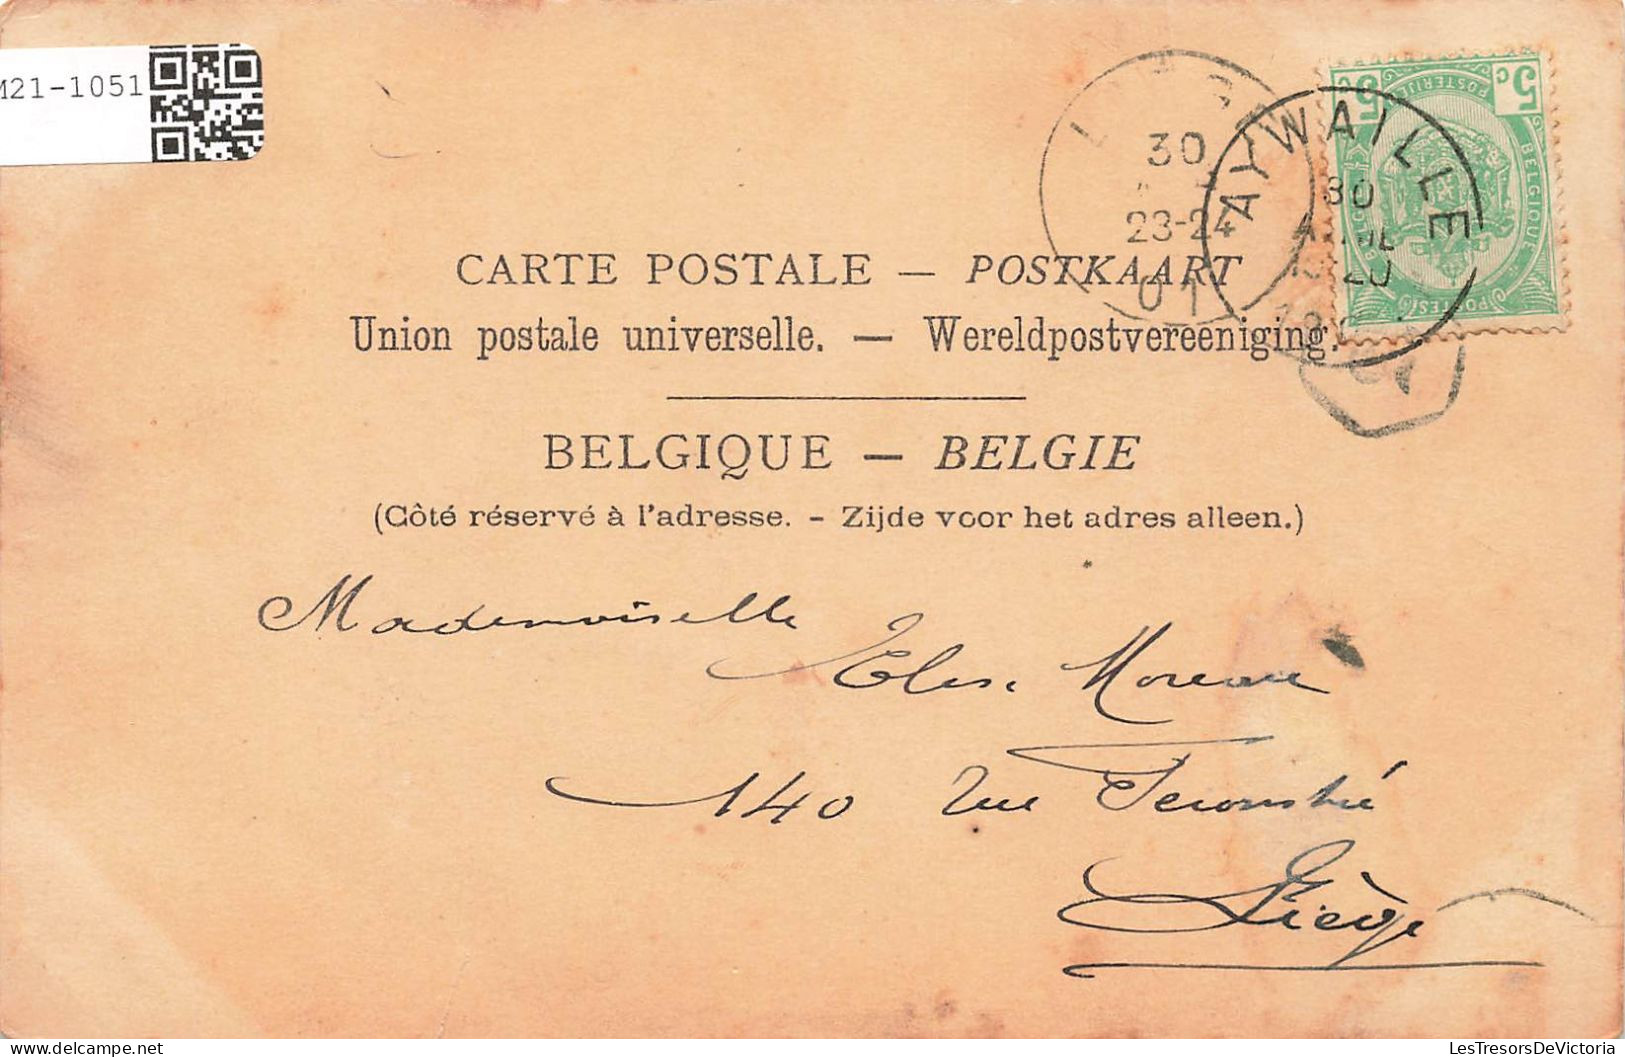 M21-1051
5c POSTERIJEN 5c
BELGIQUE
POSTES
30
23-24
01
AYWAILLE
30
20
CARTE POSTALE — POSTKAART
Union postale universelle. — Wereldpostvereeniging.
BELGIQUE — BELGIE
(Côté réservé à l'adresse. - Zijde voor het adres alleen.)
Mademoiselle
Elise Moreau
140 rue Feronstrée
Liège
LesTresorsDeVictoria
delcampe.net